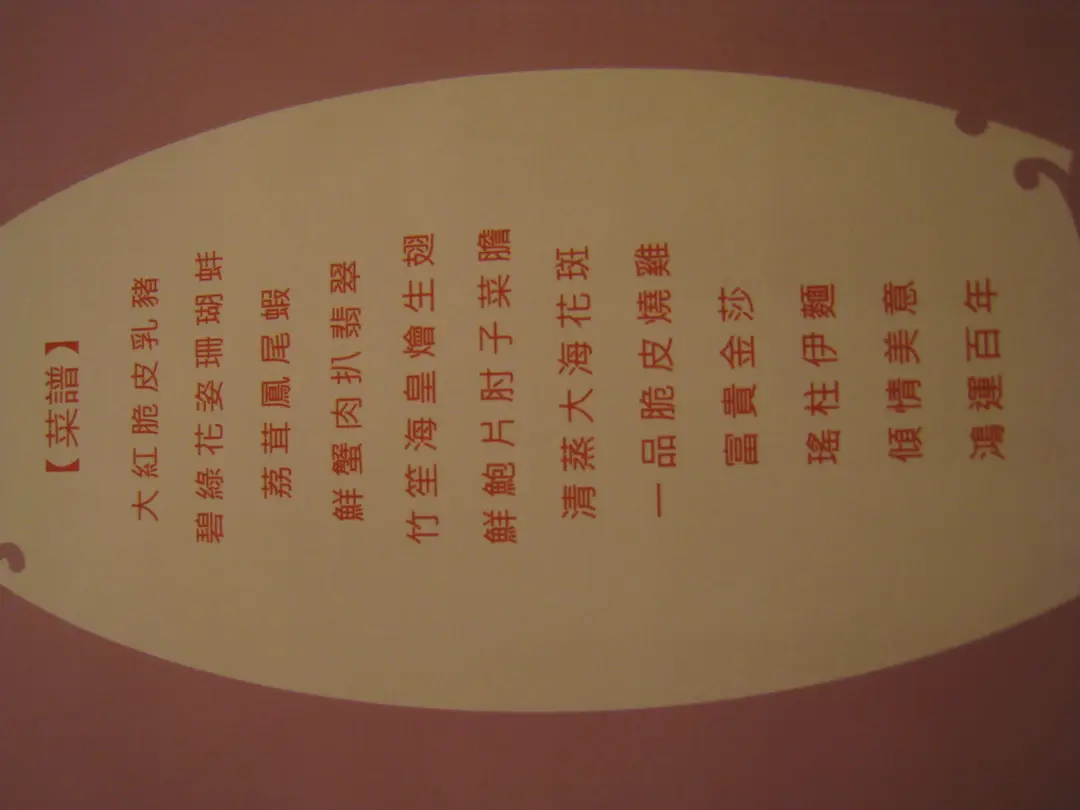 【菜譜】
大紅脆皮乳豬
碧綠花姿珊瑚蚌
荔茸鳳尾蝦
鮮蟹肉扒翡翠
竹笙海皇燴生翅
鮮鮑片肘子菜膽
清蒸大海花斑
一品脆皮燒雞
富貴金莎
瑤柱伊麵
傾情美意
鴻運百年